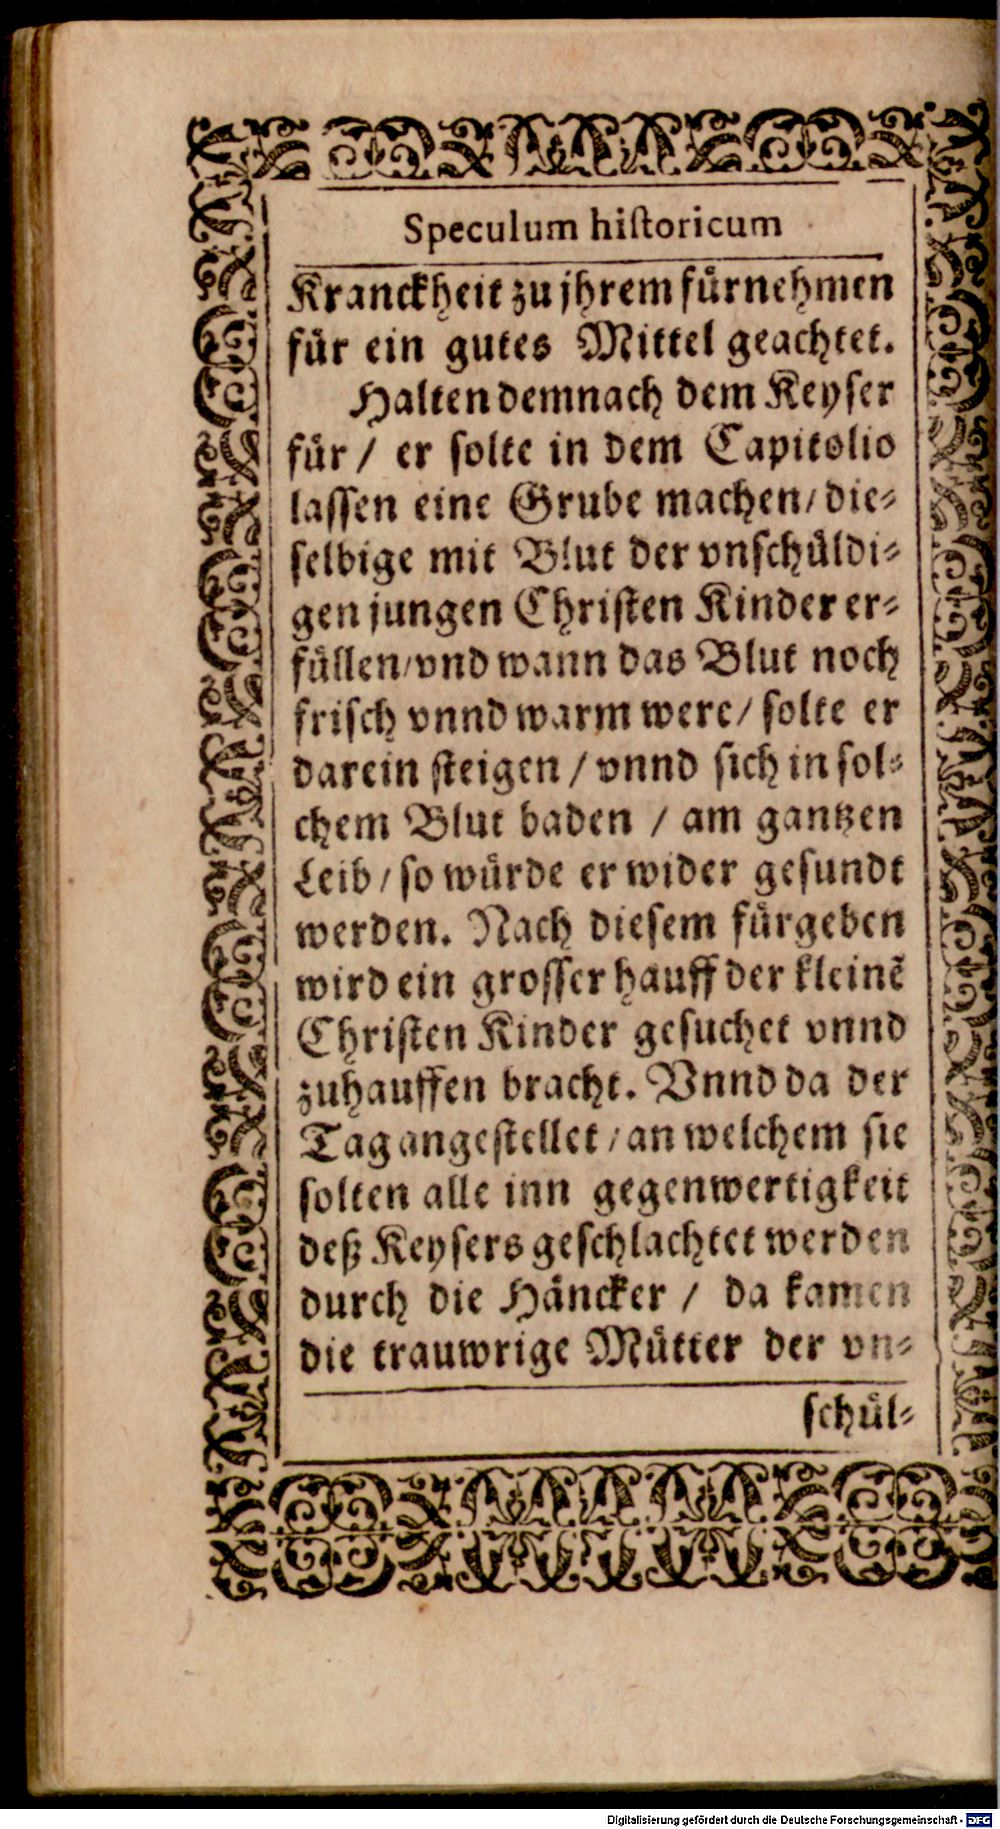 Speculum hiſtoricum
Kranckheit zu jhrem fuͤrnehmen
fuͤr ein gutes Mittel geachtet.
Halten demnach dem Keyſer
fuͤr / er ſolte in dem Capitolio
laſſen eine Grube machen / die⸗
ſelbige mit Blut der vnſchuͤldi⸗
gen jungen Chriſten Kinder er⸗
fuͤllen / vnd wann das Blut noch
friſch vnnd warm were / ſolte er
darein ſteigen / vnnd ſich in ſol⸗
chem Blut baden / am gantzen
Leib / ſo wuͤrde er wider geſundt
werden. Nach dieſem fuͤrgeben
wird ein groſſer hauff der kleinẽ
Chriſten Kinder geſuchet vnnd
zuhauffen bracht. Vnnd da der
Tag angeſtellet / an welchem ſie
ſolten alle inn gegenwertigkeit
deß Keyſers geſchlachtet werden
durch die Haͤncker / da kamen
die trauwrige Muͤtter der vn⸗
ſchuͤl⸗
Digitalisierung gefördert durch die Deutsche Forschungsgemeinschaft - DFG